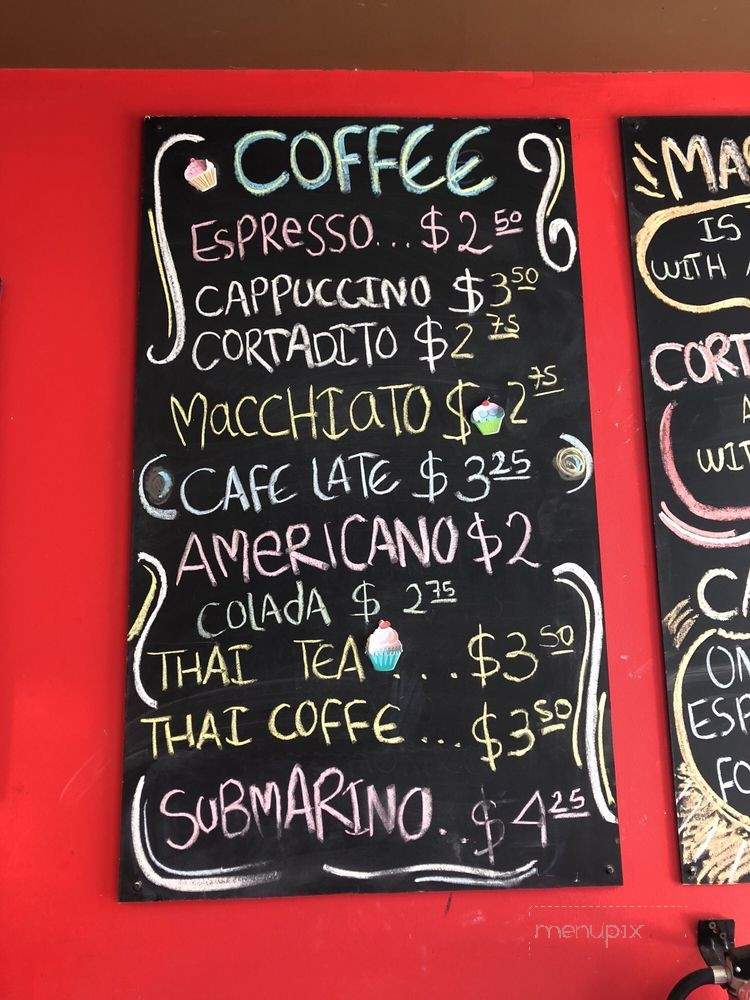 COFFEE
ESPRESSO... $2 50
CAPPUCCINO $3 50
CORTADITO $2 75
MACCHIATO $ 2 75
CAFE LATE $ 3 25
AMERICANO $2
COLADA $ 2 75
THAI TEA . . . $3 50
THAI COFFE ... $3 50
SUBMARINO. . $4 25
IS
WITH
CORT
WIT
ON
ESP
FO
menupix